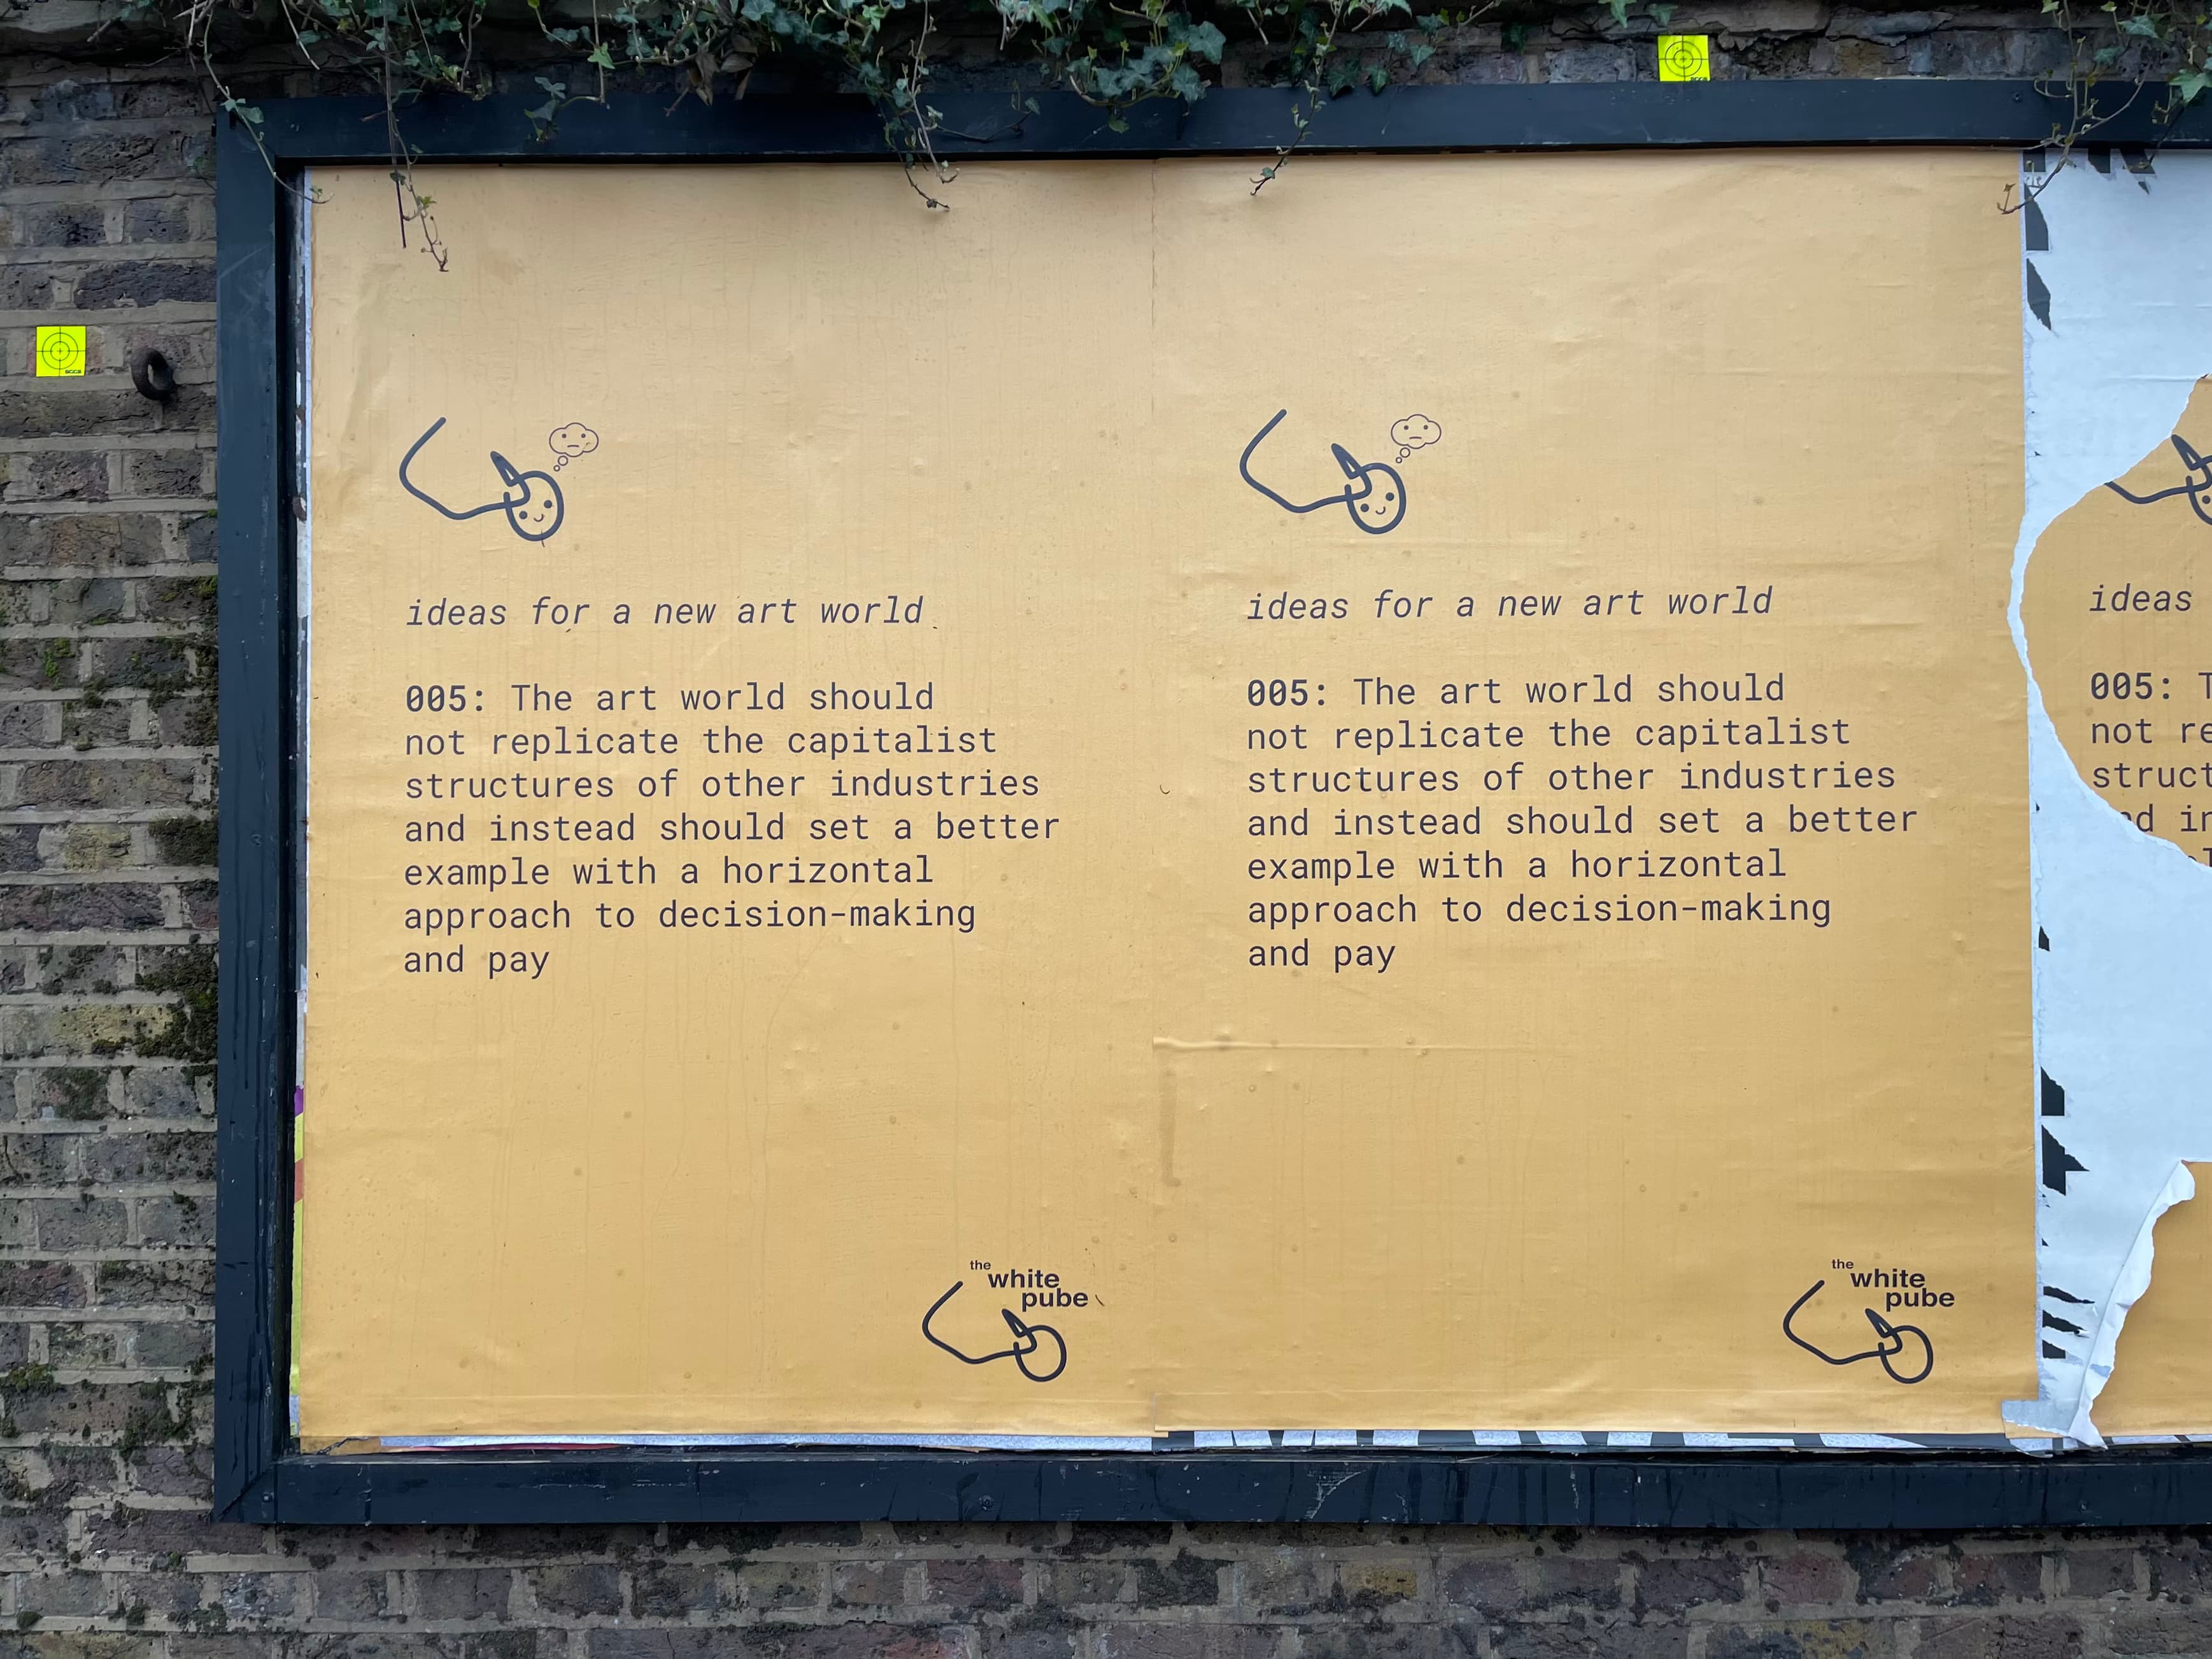 ideas for a new art world
005: The art world should
not replicate the capitalist
structures of other industries
and instead should set a better
example with a horizontal
approach to decision-making
and pay
the
white
pube
ideas for a new art world
005: The art world should
not replicate the capitalist
structures of other industries
and instead should set a better
example with a horizontal
approach to decision-making
and pay
the
white
pube
ideas
005: T
not re
struct
nd in